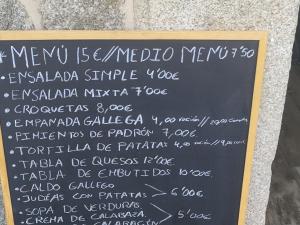 * MENÚ 15€ // MEDIO MENÚ 7'50
• ENSALADA SIMPLE 4'00€
• ENSALADA MIXTA 7'00€
• CROQUETAS 8,00€
• EMPANADA GALLEGA 4,00 ración //
• PIMIENTOS DE PADRÓN 7,00€
• TORTILLA DE PATATAS 4,00 ración //
• TABLA DE QUESOS 12'00€
• TABLA DE EMBUTIDOS 10'00€
• CALDO GALLEGO
• JUDÍAS CON PATATAS > 6'00€
• SOPA DE VERDURAS
• CREMA DE CALABAZA > 5'00€